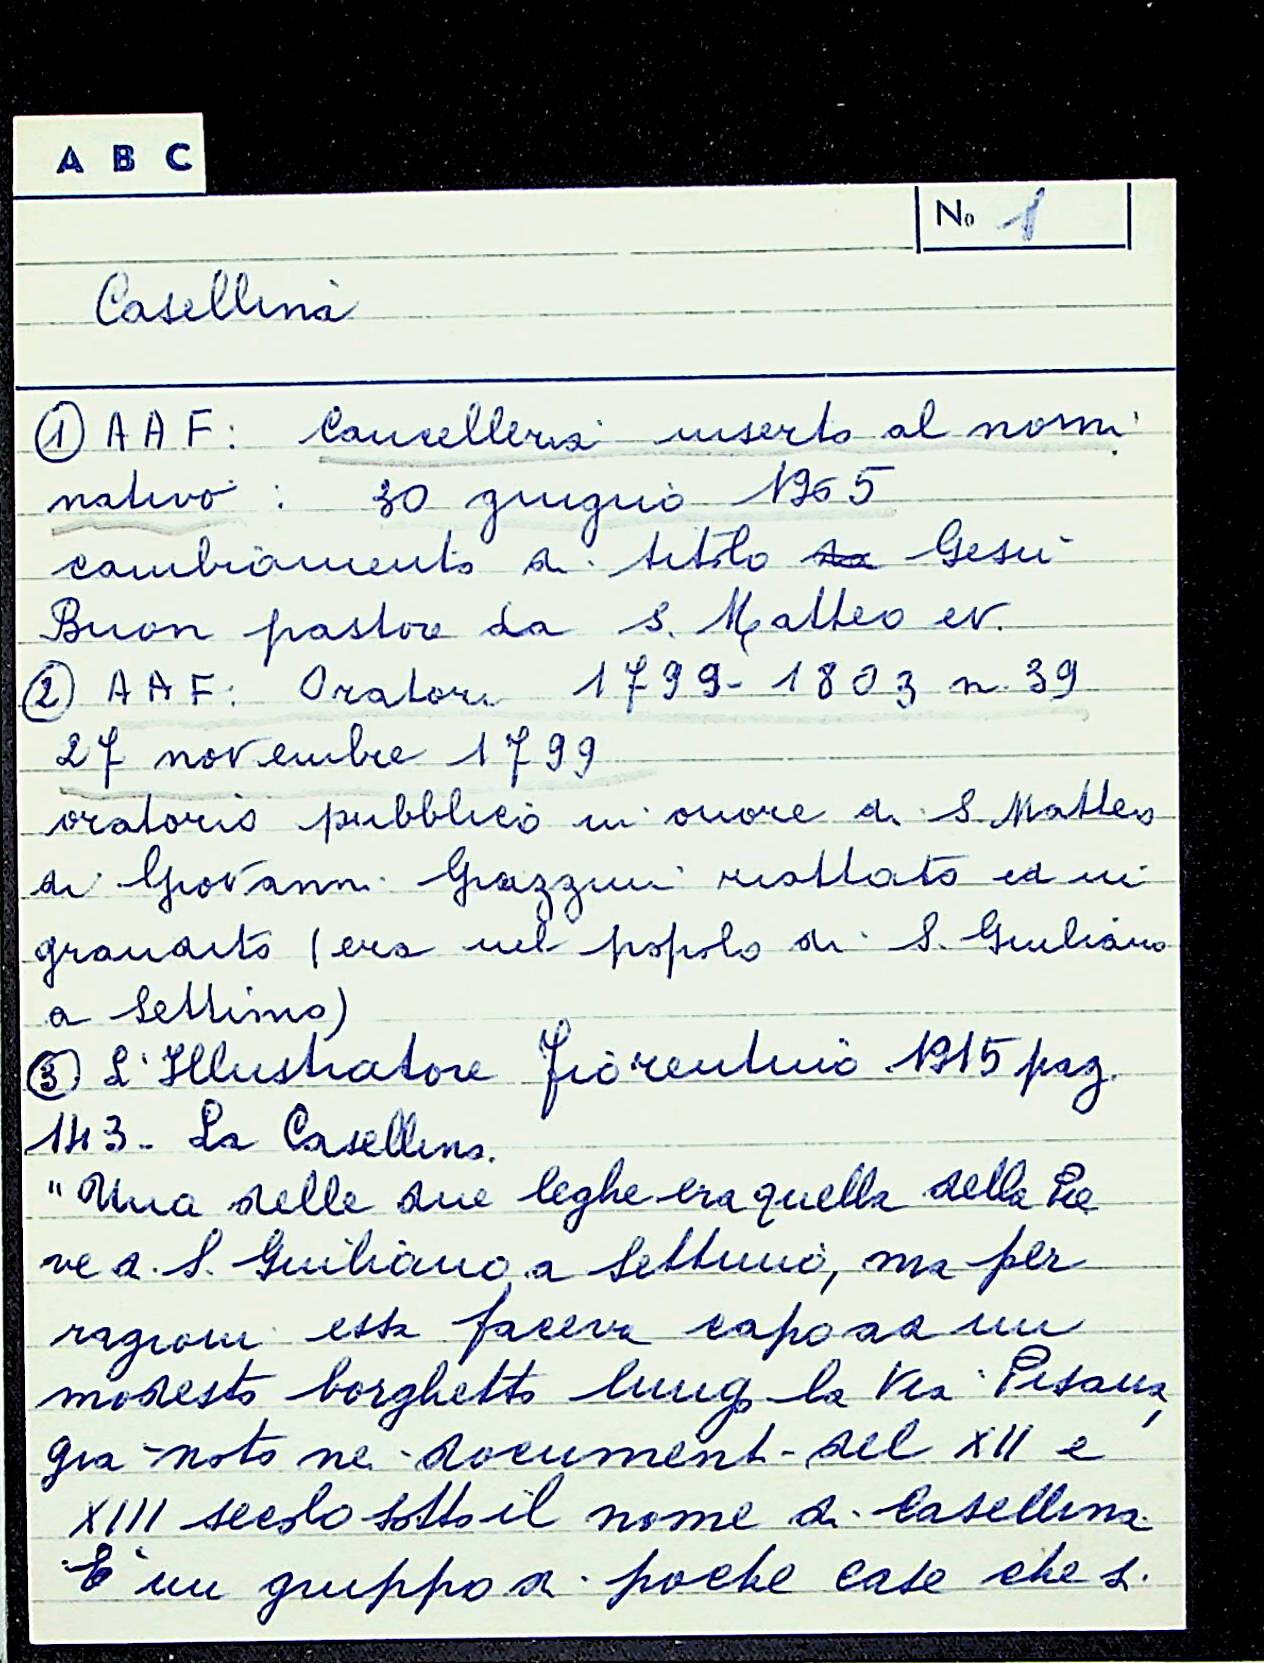 A B C
No 1
Casellina
① AAF: Cancelleria inserto al nomi
nativo : 30 giugno 1965
cambiamento di titolo da Gesù
Buon pastore da S. Matteo ev.
② AAF: Oratori 1799-1803 n. 39
27 novembre 1799
oratorio pubblico in onore di S. Matteo
di Giovanni Grazzini riattato ed in
grandito (era nel popolo di S. Giuliano
a Settimo)
③ L'Illustratore Fiorentino 1915 pag.
143. La Casellina.
"Una delle due leghe era quella della Pie
ve di S. Giuliano a Settimo, ma per
ragioni essa faceva capo ad un
modesto borghetto lungo la Via Pisana,
già noto nei documenti del XII e
XIII secolo sotto il nome di Casellina.
È un gruppo di poche case che si